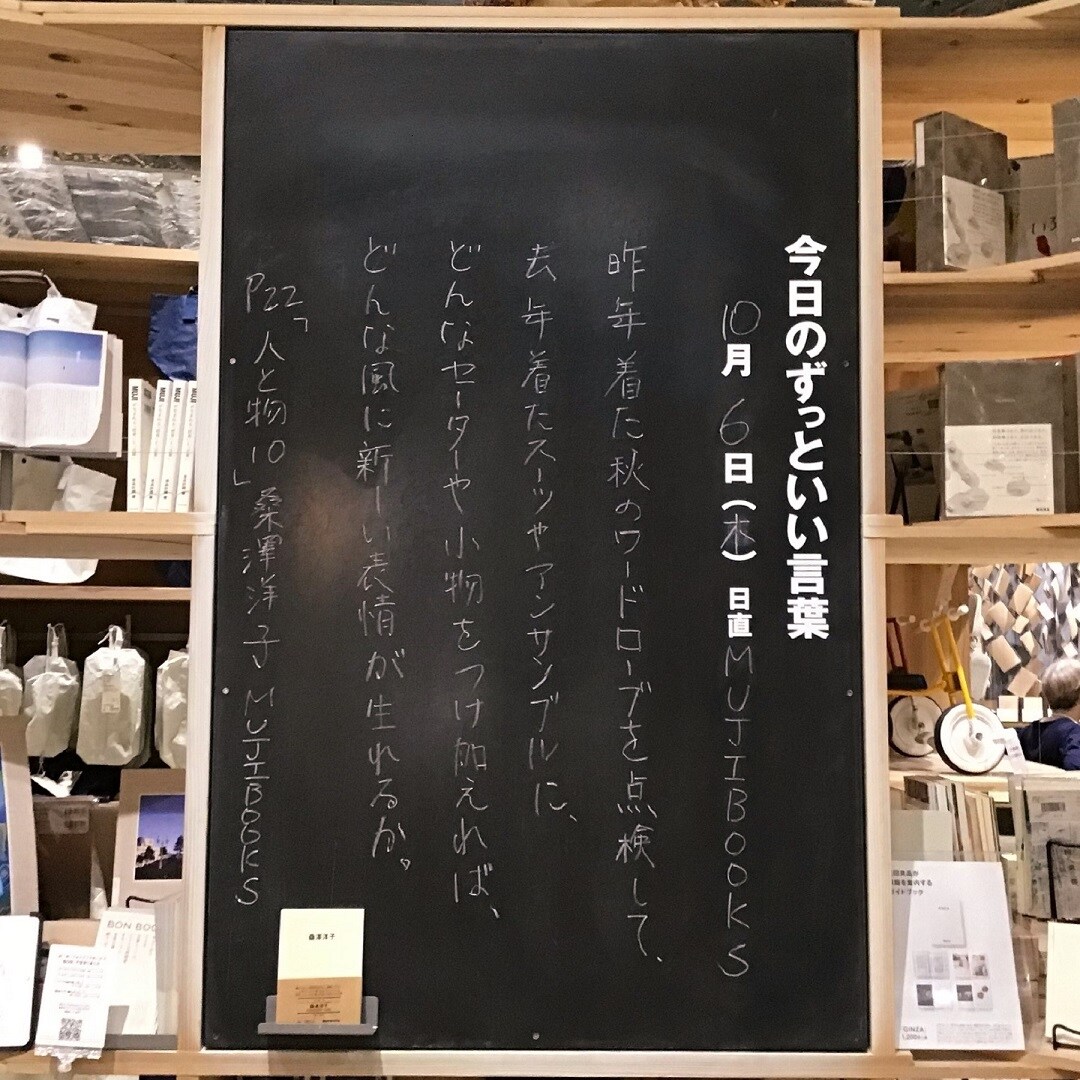 今日のずっといい言葉
10月6日(木) 日直 MUJIBOOKS
昨年着た秋のワードローブを点検して、
去年着たスーツやアンサンブルに、
どんなセーターや小物をつけ加えれば、
どんな風に新しい表情が生れるか。
P22「人と物10」桑澤洋子 MUJIBOOKS
桑澤洋子
BON BOO
MUJI
MUJI
MUJI
MUJI
GINZA